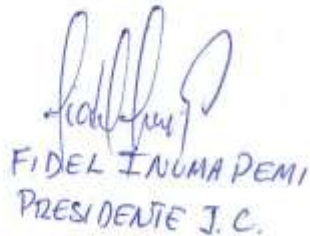 FIDEL INUMA PEMI
PRESIDENTE J.C.